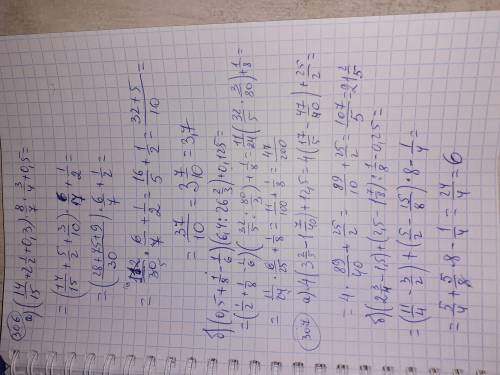 306
а) (14/15 + 2 1/2 + 0,3) · 8/7 · 3/4 + 0,5 =
= (14/15 + 5/2 + 3/10) · 6/7 + 1/2 =
= (28+75+9)/30 · 6/7 + 1/2 =
= 112/30 · 6/7 + 1/2 = 16/5 + 1/2 = (32+5)/10 =
= 37/10 = 3 7/10 = 3,7
б) (0,5 + 1/8 - 1/6) (6,4 : 26 2/3) + 0,125 =
= (1/2 + 1/8 - 1/6) (32/5 : 80/3) + 1/8 = 11/24 (32/5 · 3/80) + 1/8 =
= 11/24 · 6/25 + 1/8 = 11/100 + 1/8 = 47/200
307
а) 4 (3 2/5 - 1 7/40) + 12,5 = 4 (17/5 - 47/40) + 25/2 =
= 4 · 89/40 + 25/2 = 89/10 + 25/2 = 107/5 = 21 2/5
б) (2 3/4 - 1,5) + (2,5 - 1 7/8) : 1/8 - 0,25 =
= (11/4 - 3/2) + (5/2 - 15/8) · 8 - 1/4 =
= 5/4 + 5/8 · 8 - 1/4 = 24/4 = 6